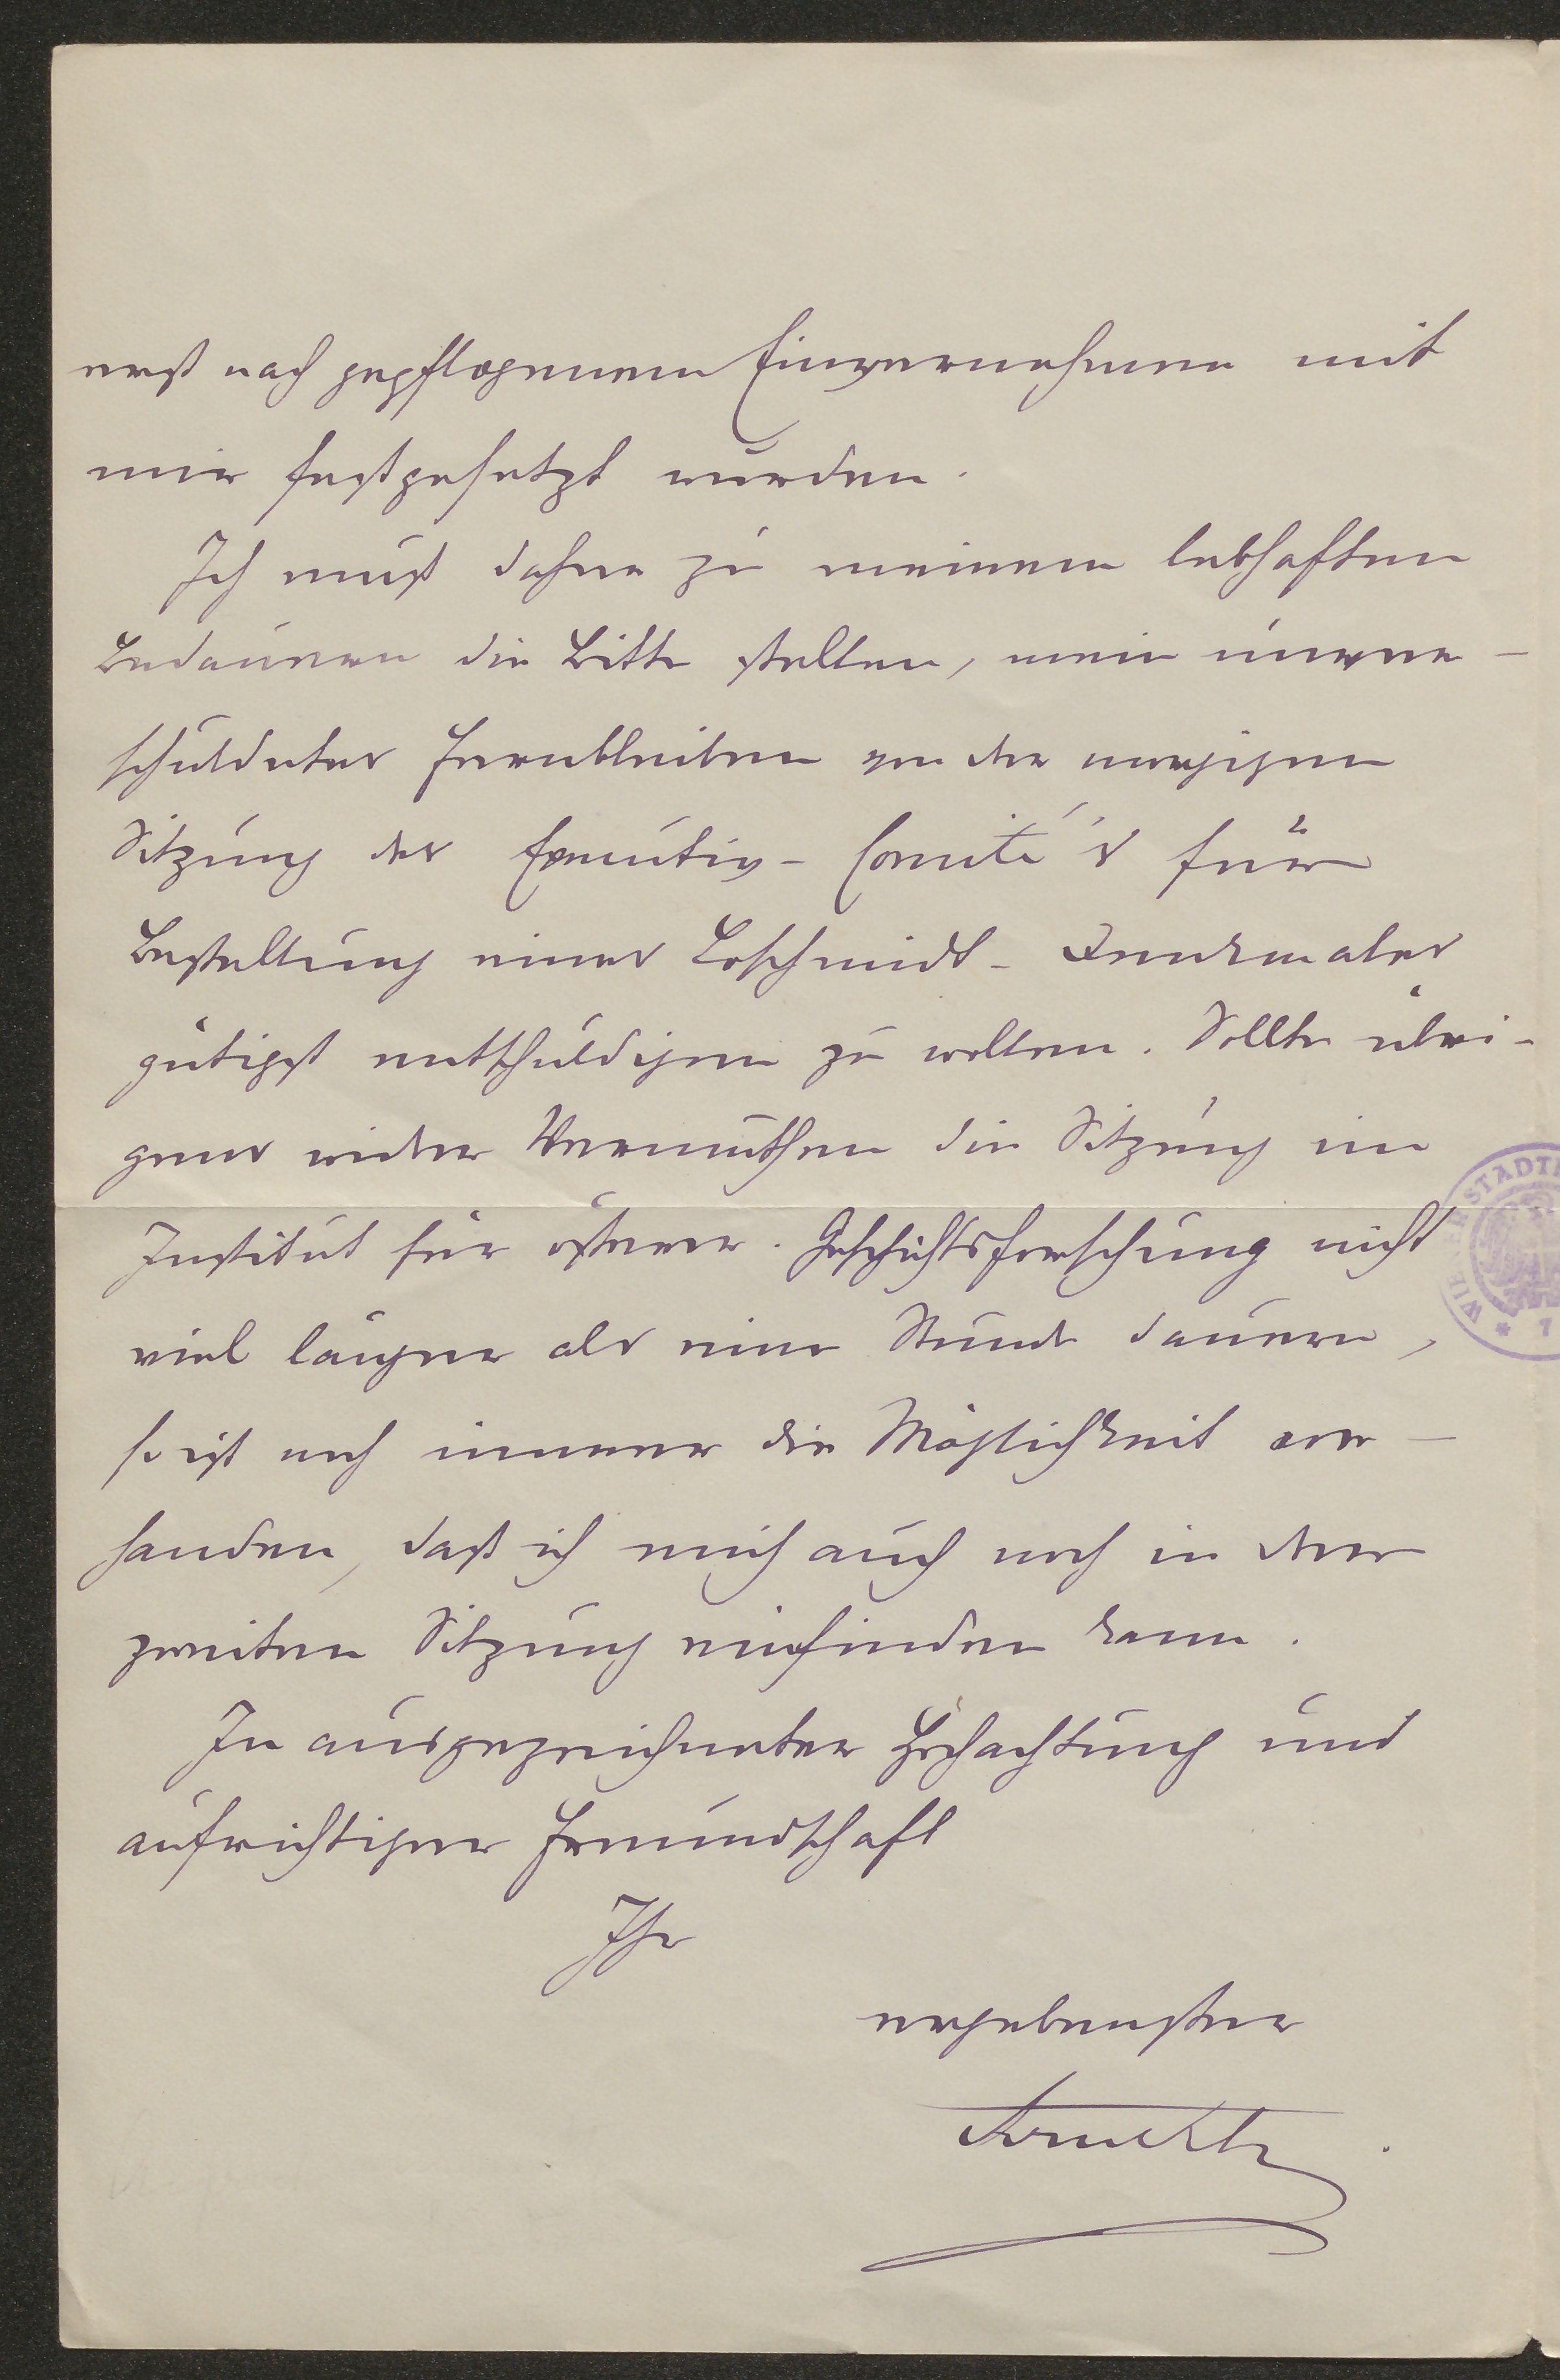 erst nach gepflogenem Einvernehmen mit
mir festgesetzt wurden.
Ich muß daher zu meinem lebhaften
Bedauern die Bitte stellen, mein unver-
schuldetes Fernbleiben von der morgigen
Sitzung des Executiv-Comité's für
Bestellung eines Loschmidt-Denkmales
gütigst entschuldigen zu wollen. Sollte übri-
gens wider Vermuthen die Sitzung im
Institut für österr. Geschichtsforschung nicht
viel länger als eine Stunde dauern,
so ist noch immer die Möglichkeit vor-
handen, daß ich mich auch noch in der
zweiten Sitzung einfinden kann.
In ausgezeichneter Hochachtung und
aufrichtiger Freundschaft
Ihr
ergebenster
STADT